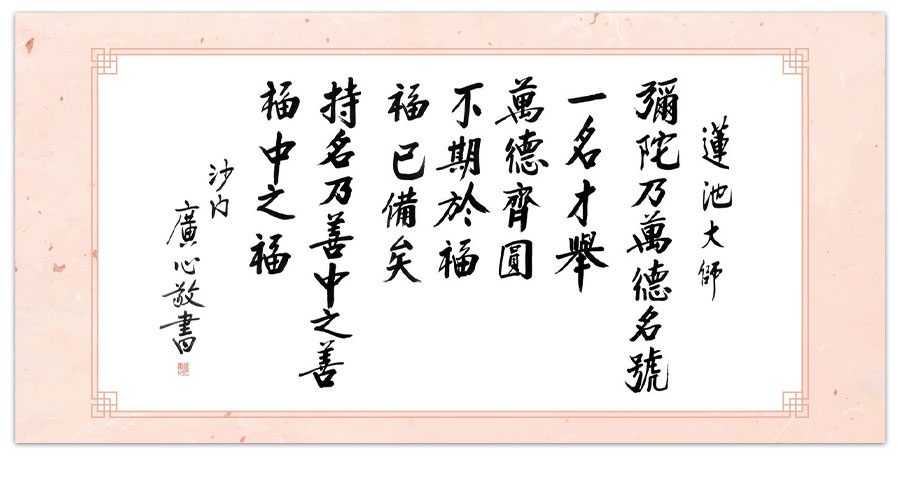 蓮池大師
彌陀乃萬德名號
一名才舉
萬德齊圓
不期於福
福已備矣
持名乃善中之善
福中之福
沙門
廣心敬書